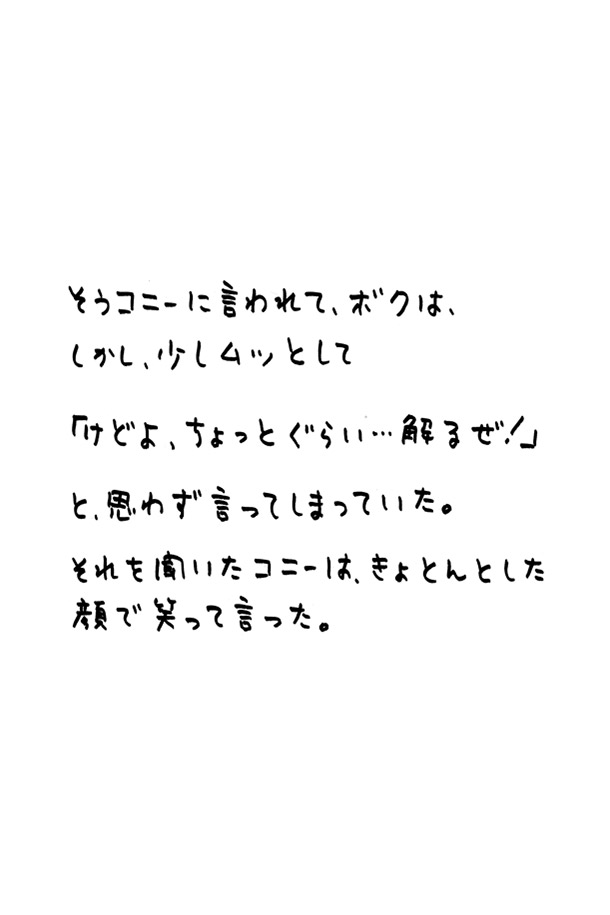 そうコニーに言われて、ボクは、
しかし、少しムッとして
「けどよ、ちょっとぐらい…解るぜ!」
と、思わず言ってしまっていた。
それを聞いたコニーは、きょとんとした
顔で笑って言った。